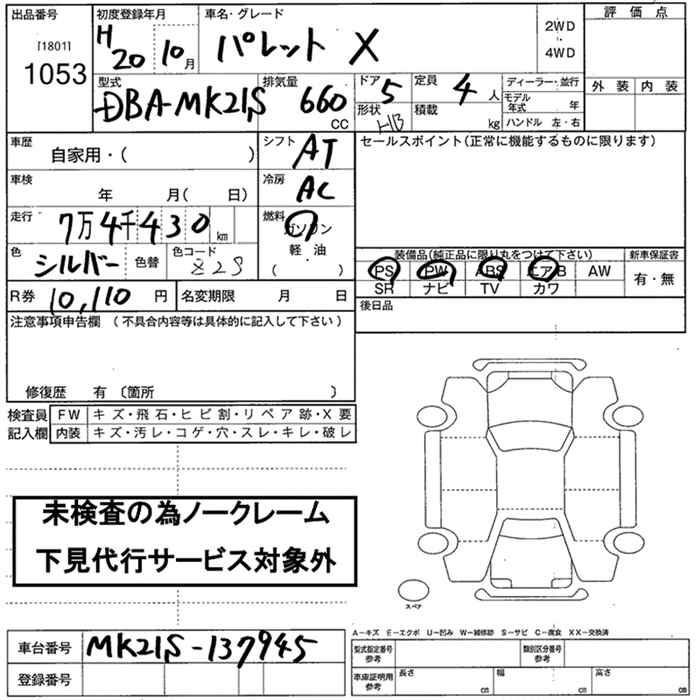 出品番号 初度登録年月 車名・グレード 評価点
[1801] 1053
H20 10月
パレット X
2WD
4WD
外装 内装
型式 排気量 ドア 定員 ディーラー・並行
DBA-MK21S 660 CC 5 4人
モデル年式 年
形状 H/B 積載 kg ハンドル 左・右
車歴 シフト セールスポイント(正常に機能するものに限ります)
自家用・( ) AT
車検 冷房
年 月( 日) AC
走行 燃料
7万4千430km ガソリン
軽・油
( )
色 色コード
シルバー 色替 Z2S
装備品(純正品に限り丸をつけて下さい) 新車保証書
PS PW ABS エアB AW 有・無
SR ナビ TV カワ
R券 10,110円 名変期限 月 日
後日品
注意事項申告欄 (不具合内容等は具体的に記入して下さい)
修復歴 有 〔箇所 〕
検査員 FW キズ・飛石・ヒビ割・リペア跡・X要
記入欄 内装 キズ・汚レ・コゲ・穴・スレ・キレ・破レ
未検査の為ノークレーム
下見代行サービス対象外
スペア
A-キズ E-エクボ U-凹み W-補修跡 S-サビ C-腐食 XX-交換済
車台番号 MK21S-137945
型式指定番号 参考 類別区分番号 参考
登録番号
車庫証明用 参考 長さ cm 幅 cm 高さ cm